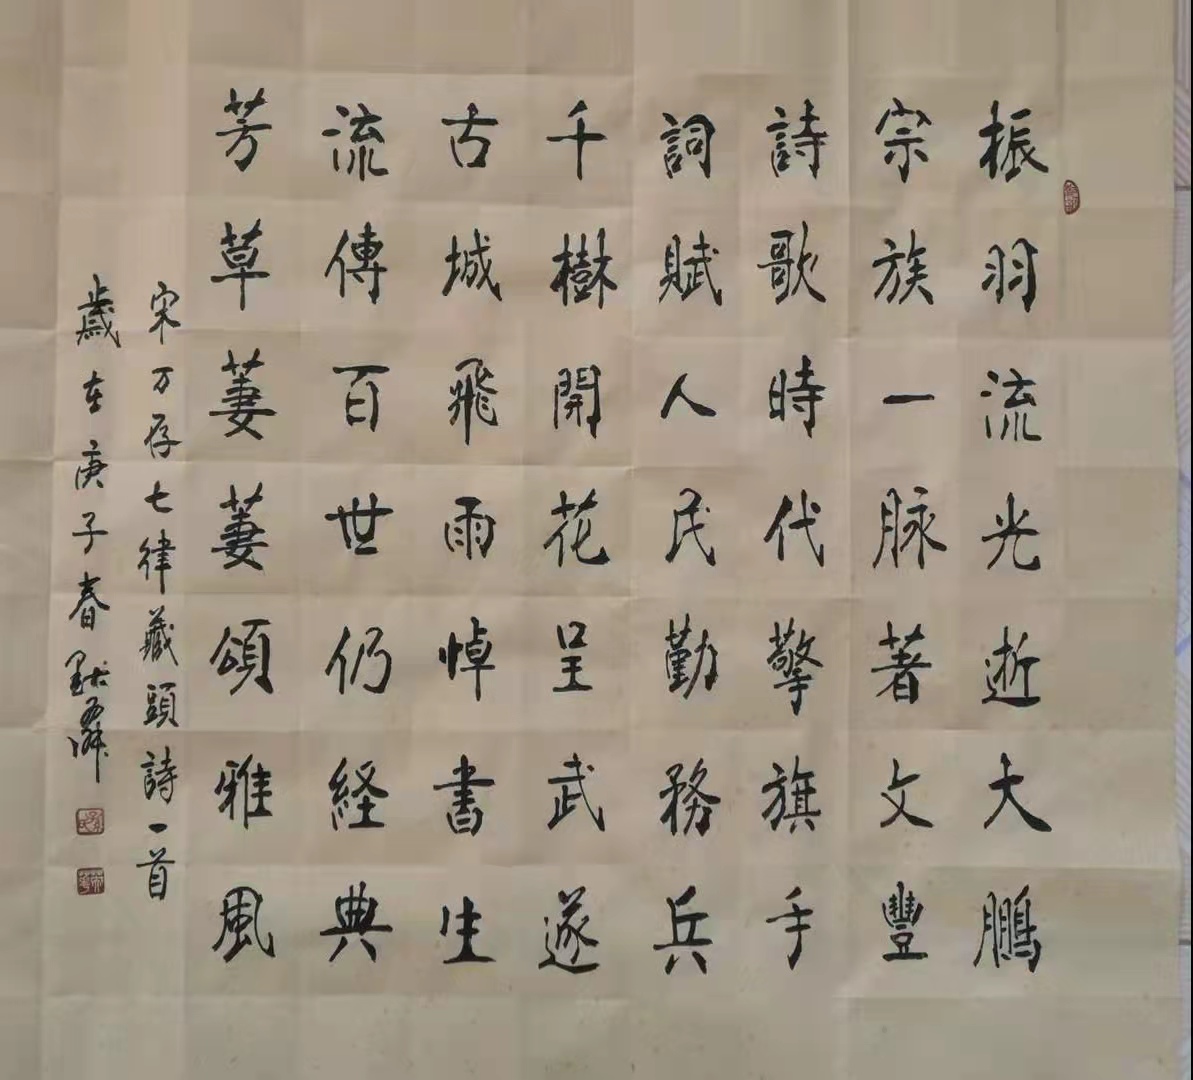 振羽流光逝大鵬
宗族一脉著文豐
詩歌時代擎旗手
詞賦人民勤務兵
千樹開花呈武遂
古城飛雨悼書生
流傳百世仍経典
芳草萋萋頌雅風
宋万存七律藏頭詩一首
歲在庚子春